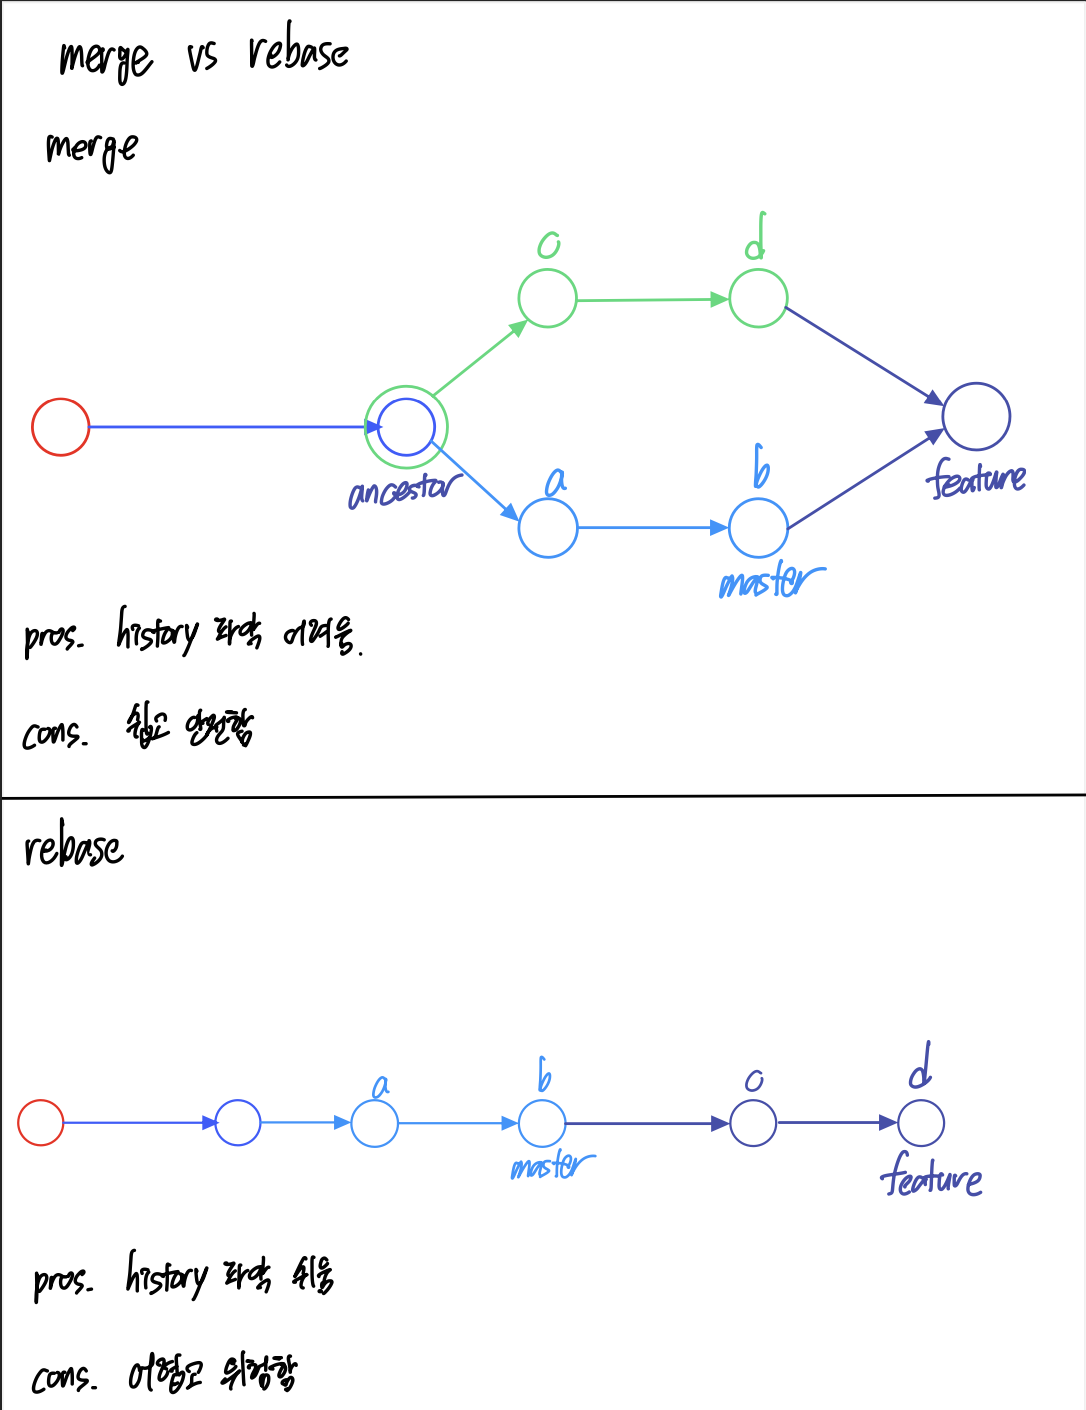 merge vs rebase
merge
c d
ancestor a b feature
master
pros. history 파악 어려움.
cons. 쉽고 안전함
rebase
a b c d
master feature
pros. history 파악 쉬움
cons. 어렵고 위험함